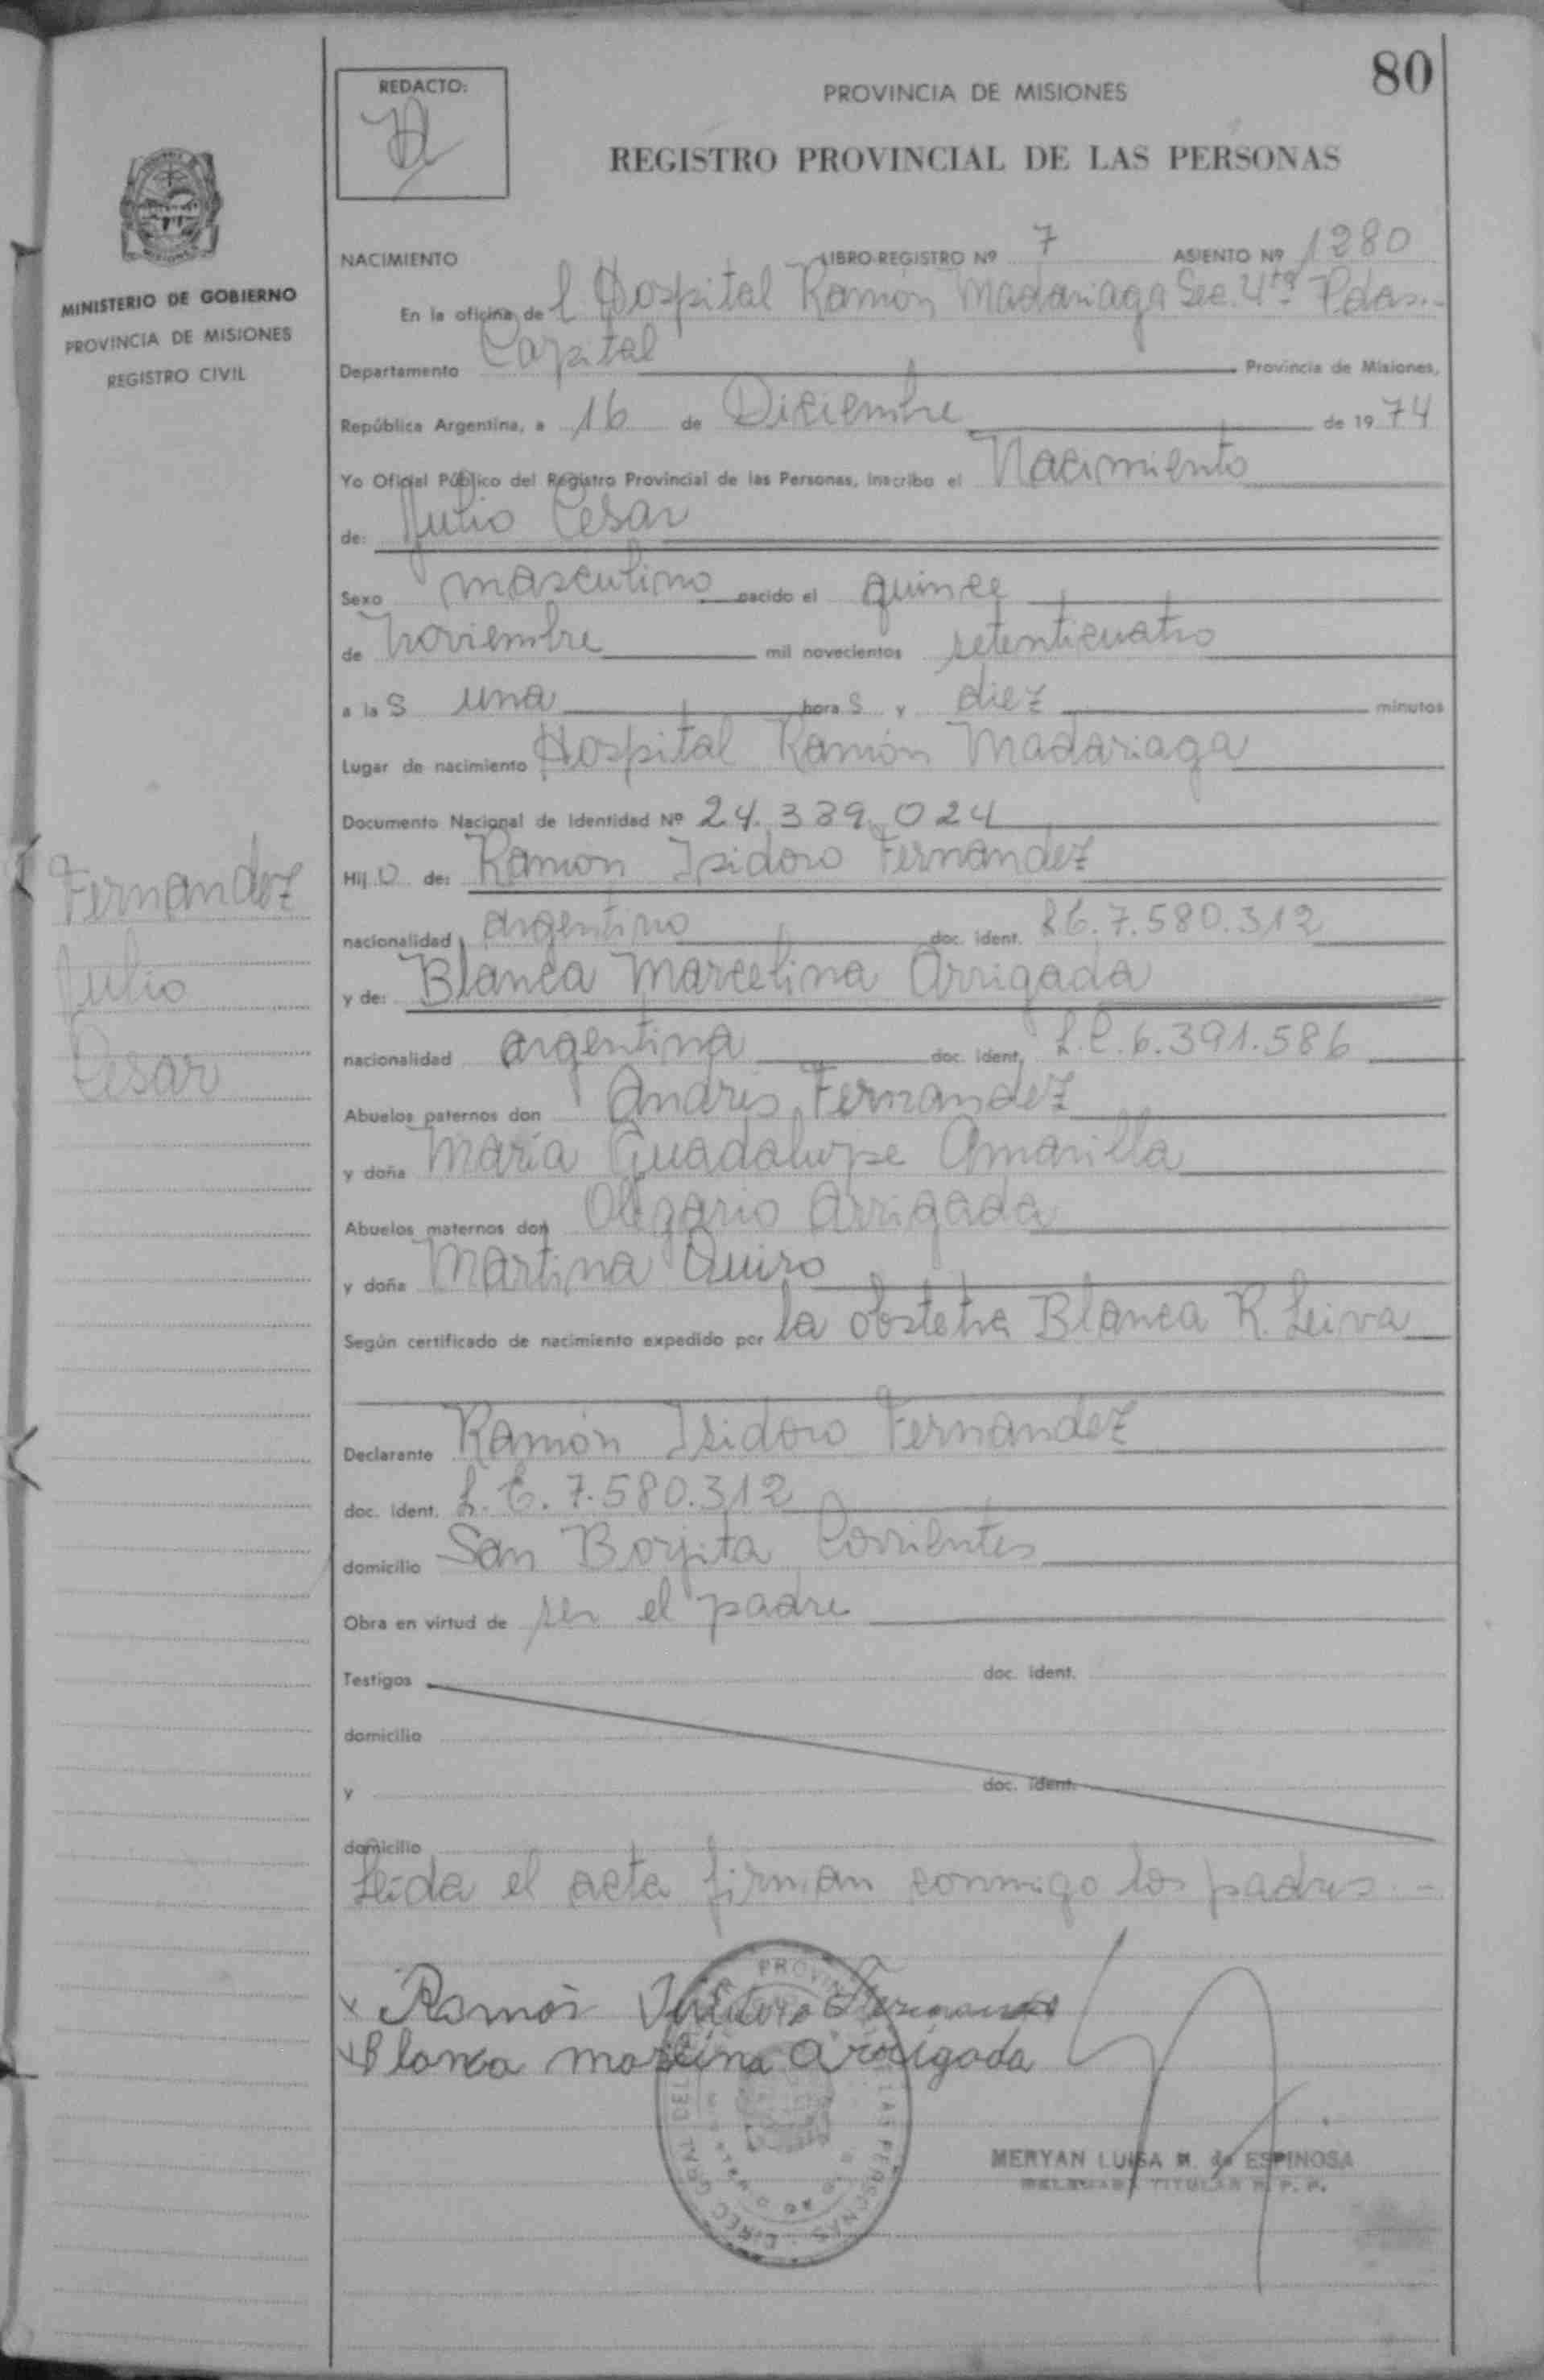 80
REDACTO:
PROVINCIA DE MISIONES
REGISTRO PROVINCIAL DE LAS PERSONAS
MINISTERIO DE GOBIERNO
PROVINCIA DE MISIONES
REGISTRO CIVIL
NACIMIENTO LIBRO-REGISTRO Nº 7 ASIENTO Nº 1280
En la oficina de l Hospital Ramón Madariaga Sec. 4ta Pdas.-
Departamento Capital Provincia de Misiones,
República Argentina, a 16 de Diciembre de 1974
Yo Oficial Público del Registro Provincial de las Personas, inscribo el Nacimiento
de: Julio Cesar
Sexo masculino nacido el quince
de Noviembre mil novecientos setenticuatro
a las una horas y diez minutos
Lugar de nacimiento Hospital Ramón Madariaga
Documento Nacional de Identidad Nº 24.339.024
Hijo de: Ramon Isidoro Fernandez
nacionalidad argentino doc. ident. L.E. 7.580.312
y de: Blanca Marcelina Arrigada
nacionalidad argentina doc. ident. L.C. 6.391.586
Abuelos paternos don Andrés Fernandez
y doña María Guadalupe Amarilla
Abuelos maternos don Olegario Arrigada
y doña Martina Quiro
Según certificado de nacimiento expedido por la obstetra Blanca R. Leiva
Declarante Ramón Isidoro Fernandez
doc. ident. L.E. 7.580.312
domicilio San Borjita Corrientes
Obra en virtud de ser el padre
Testigos doc. ident.
domicilio
y doc. ident.
domicilio
Leida el acta firman conmigo los padres.-
Fernandez
Julio
Cesar
x Ramón Isidoro Fernandez
x Blanca marcelina Arrigada
MERYAN LUISA M. de ESPINOSA
DELEGADA TITULAR R. P. P.